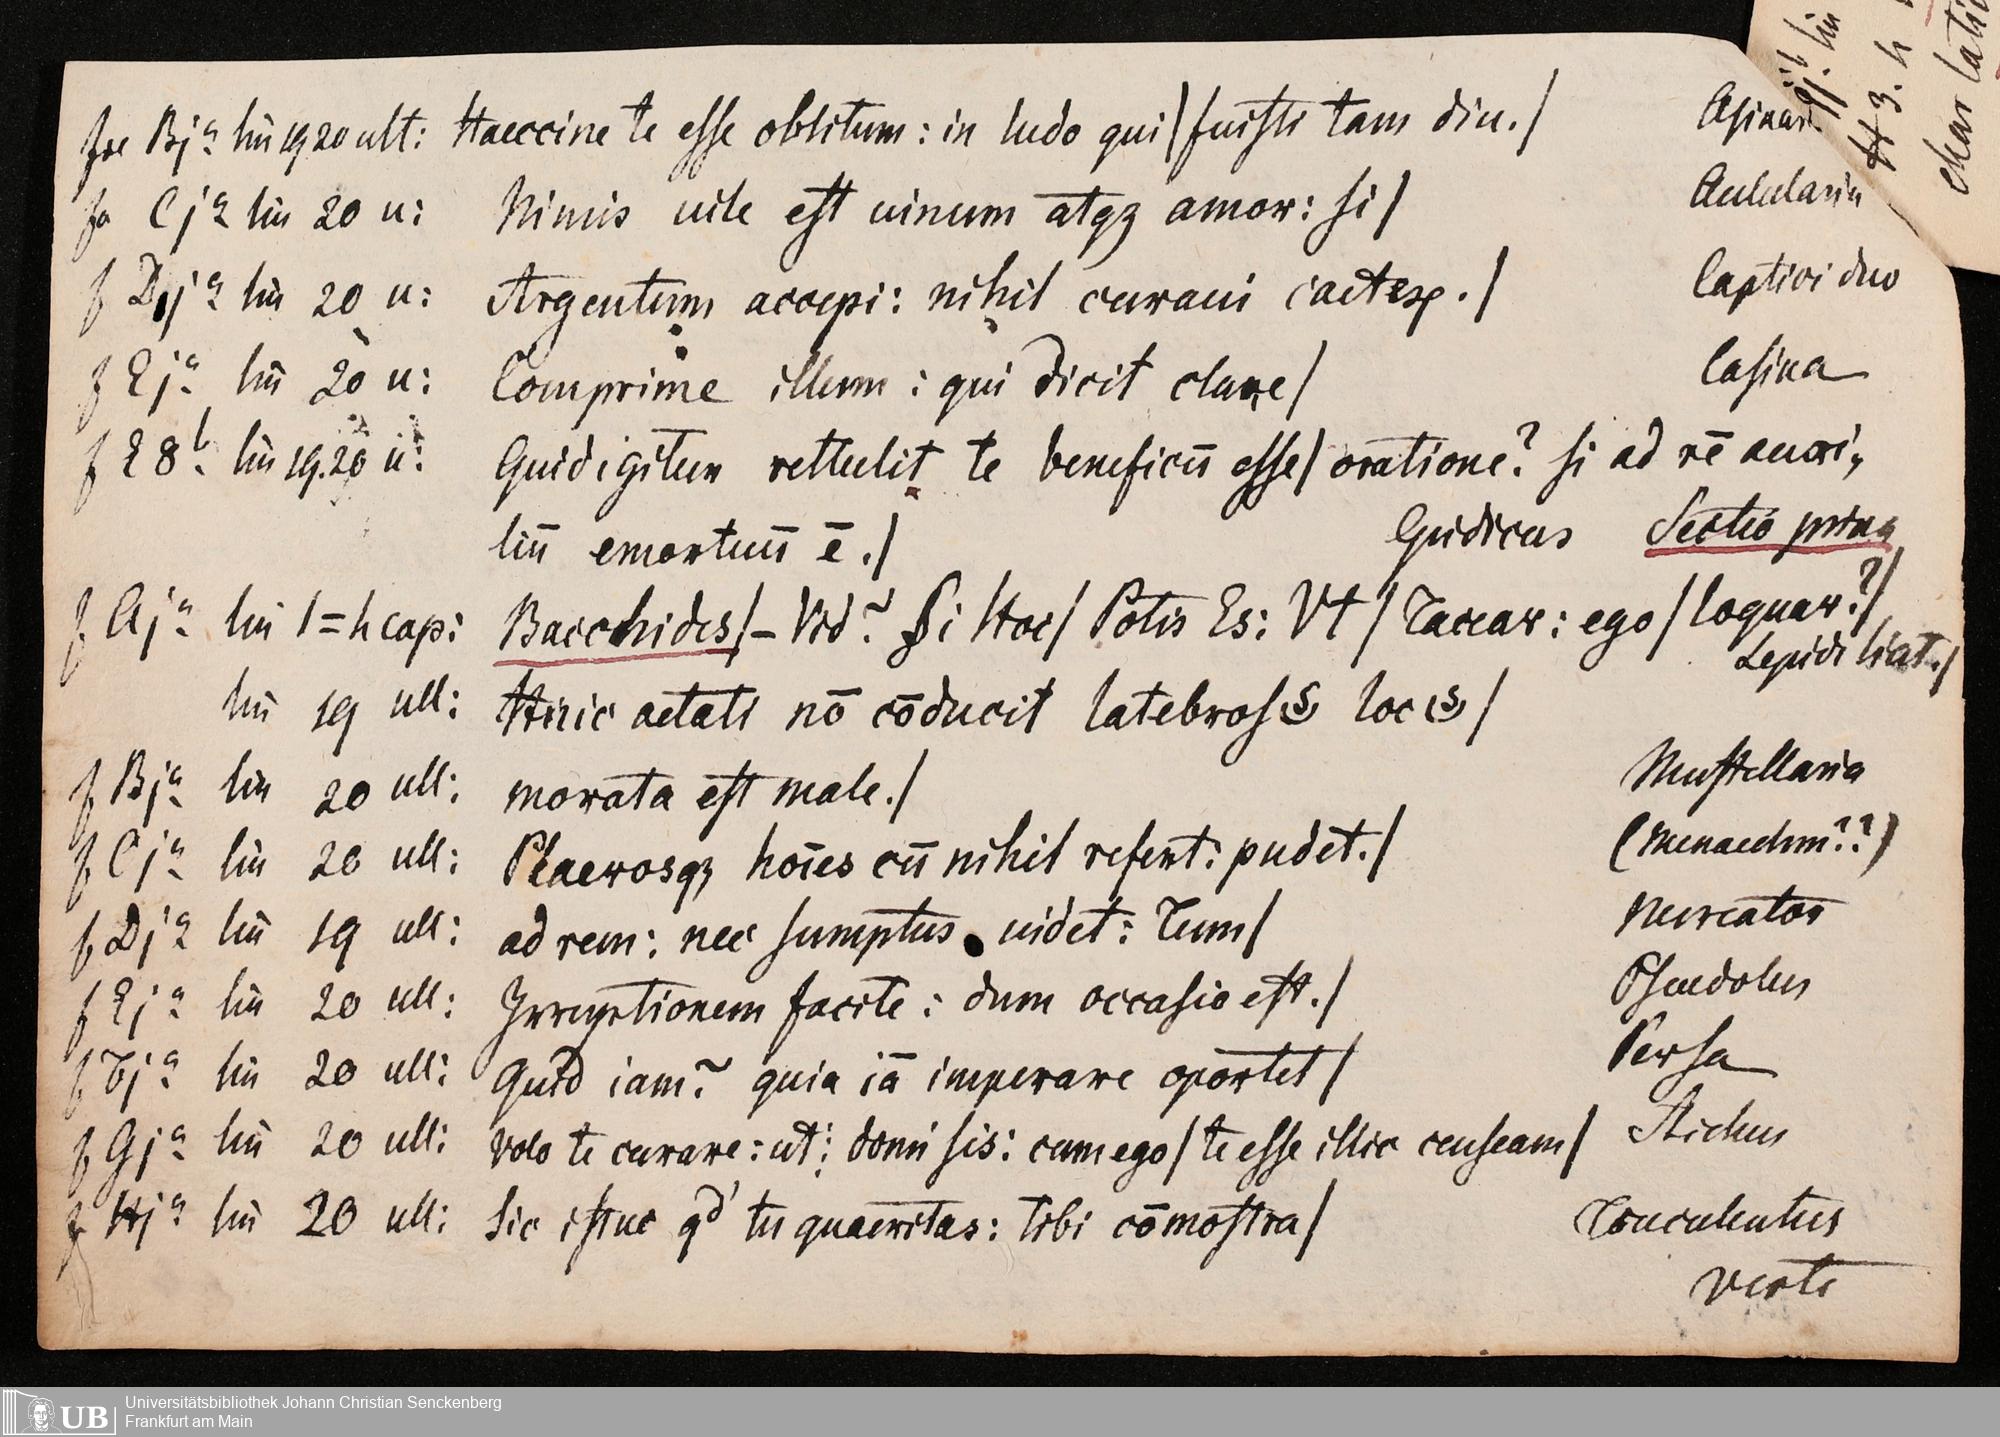 foe Bjª lin 19 20 ult: Haeccine te esse oblitum: in ludo qui/fuisti tam diu./ Asinar.
fo Cjª lin 20 u: Nimis uile est uinum atqꝫ amor: si/ Aulularia
f Djª lin 20 u: Argentum accepi: nihil curaui caeterꝝ./ Captivi duo
f Ejª lin 20 u: Comprime illum: qui dicit clare/ Casina
f E8b lin 19.20 u: Quid igitur rettulit te beneficū esse/oratione? si ad rē auxi,
liū emortuū ē./ Epidicus Sectio prima
f Ajª lin 1=h cap: Bacchides/– Vid? Si Hoc/ Potis Es: Vt/Taceas: ego/loquar?/
Lepidi liat./
lin 19 ult: Huic aetati nō cōducit latebrosꝰ locꝰ/
f Bjª lin 20 ult: morata est male./ Mustellaria
f Cjª lin 20 ult: Plaerosqꝫ hoīes cū nihil refert: pudet./ (Menaechm??)
f Djª lin 19 ult: ad rem: nec sumptus uidet: Tum/ Mercator
f Ejª lin 20 ult: Irruptionem facite: dum occasio est./ Pseudolus
f Fjª lin 20 ult: Quid iam? quia iā imperare oportet/ Persa
f Gjª lin 20 ult: Volo te curare: ut: domi sis: cum ego/te esse illic censeam/ Stichus
f Hjª lin 20 ult: Sic istuc qd tu quaeritas: tibi cōmostra/ Truculentus
verte
H 3.
char lati
UB
Universitätsbibliothek Johann Christian Senckenberg
Frankfurt am Main